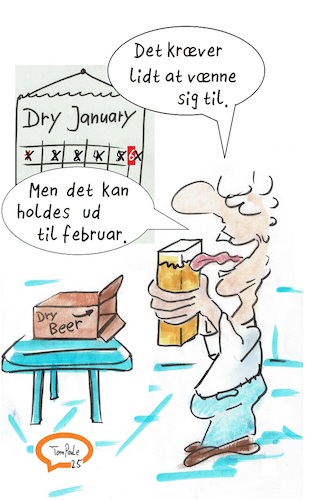 Det kræver
lidt at vænne
sig til.
Dry January
Men det kan
holdes ud
til februar.
Dry
Beer
TomPauLe
25